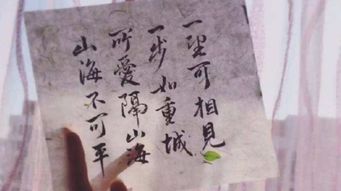 一望可相見
一步如重城
所愛隔山海
山海不可平